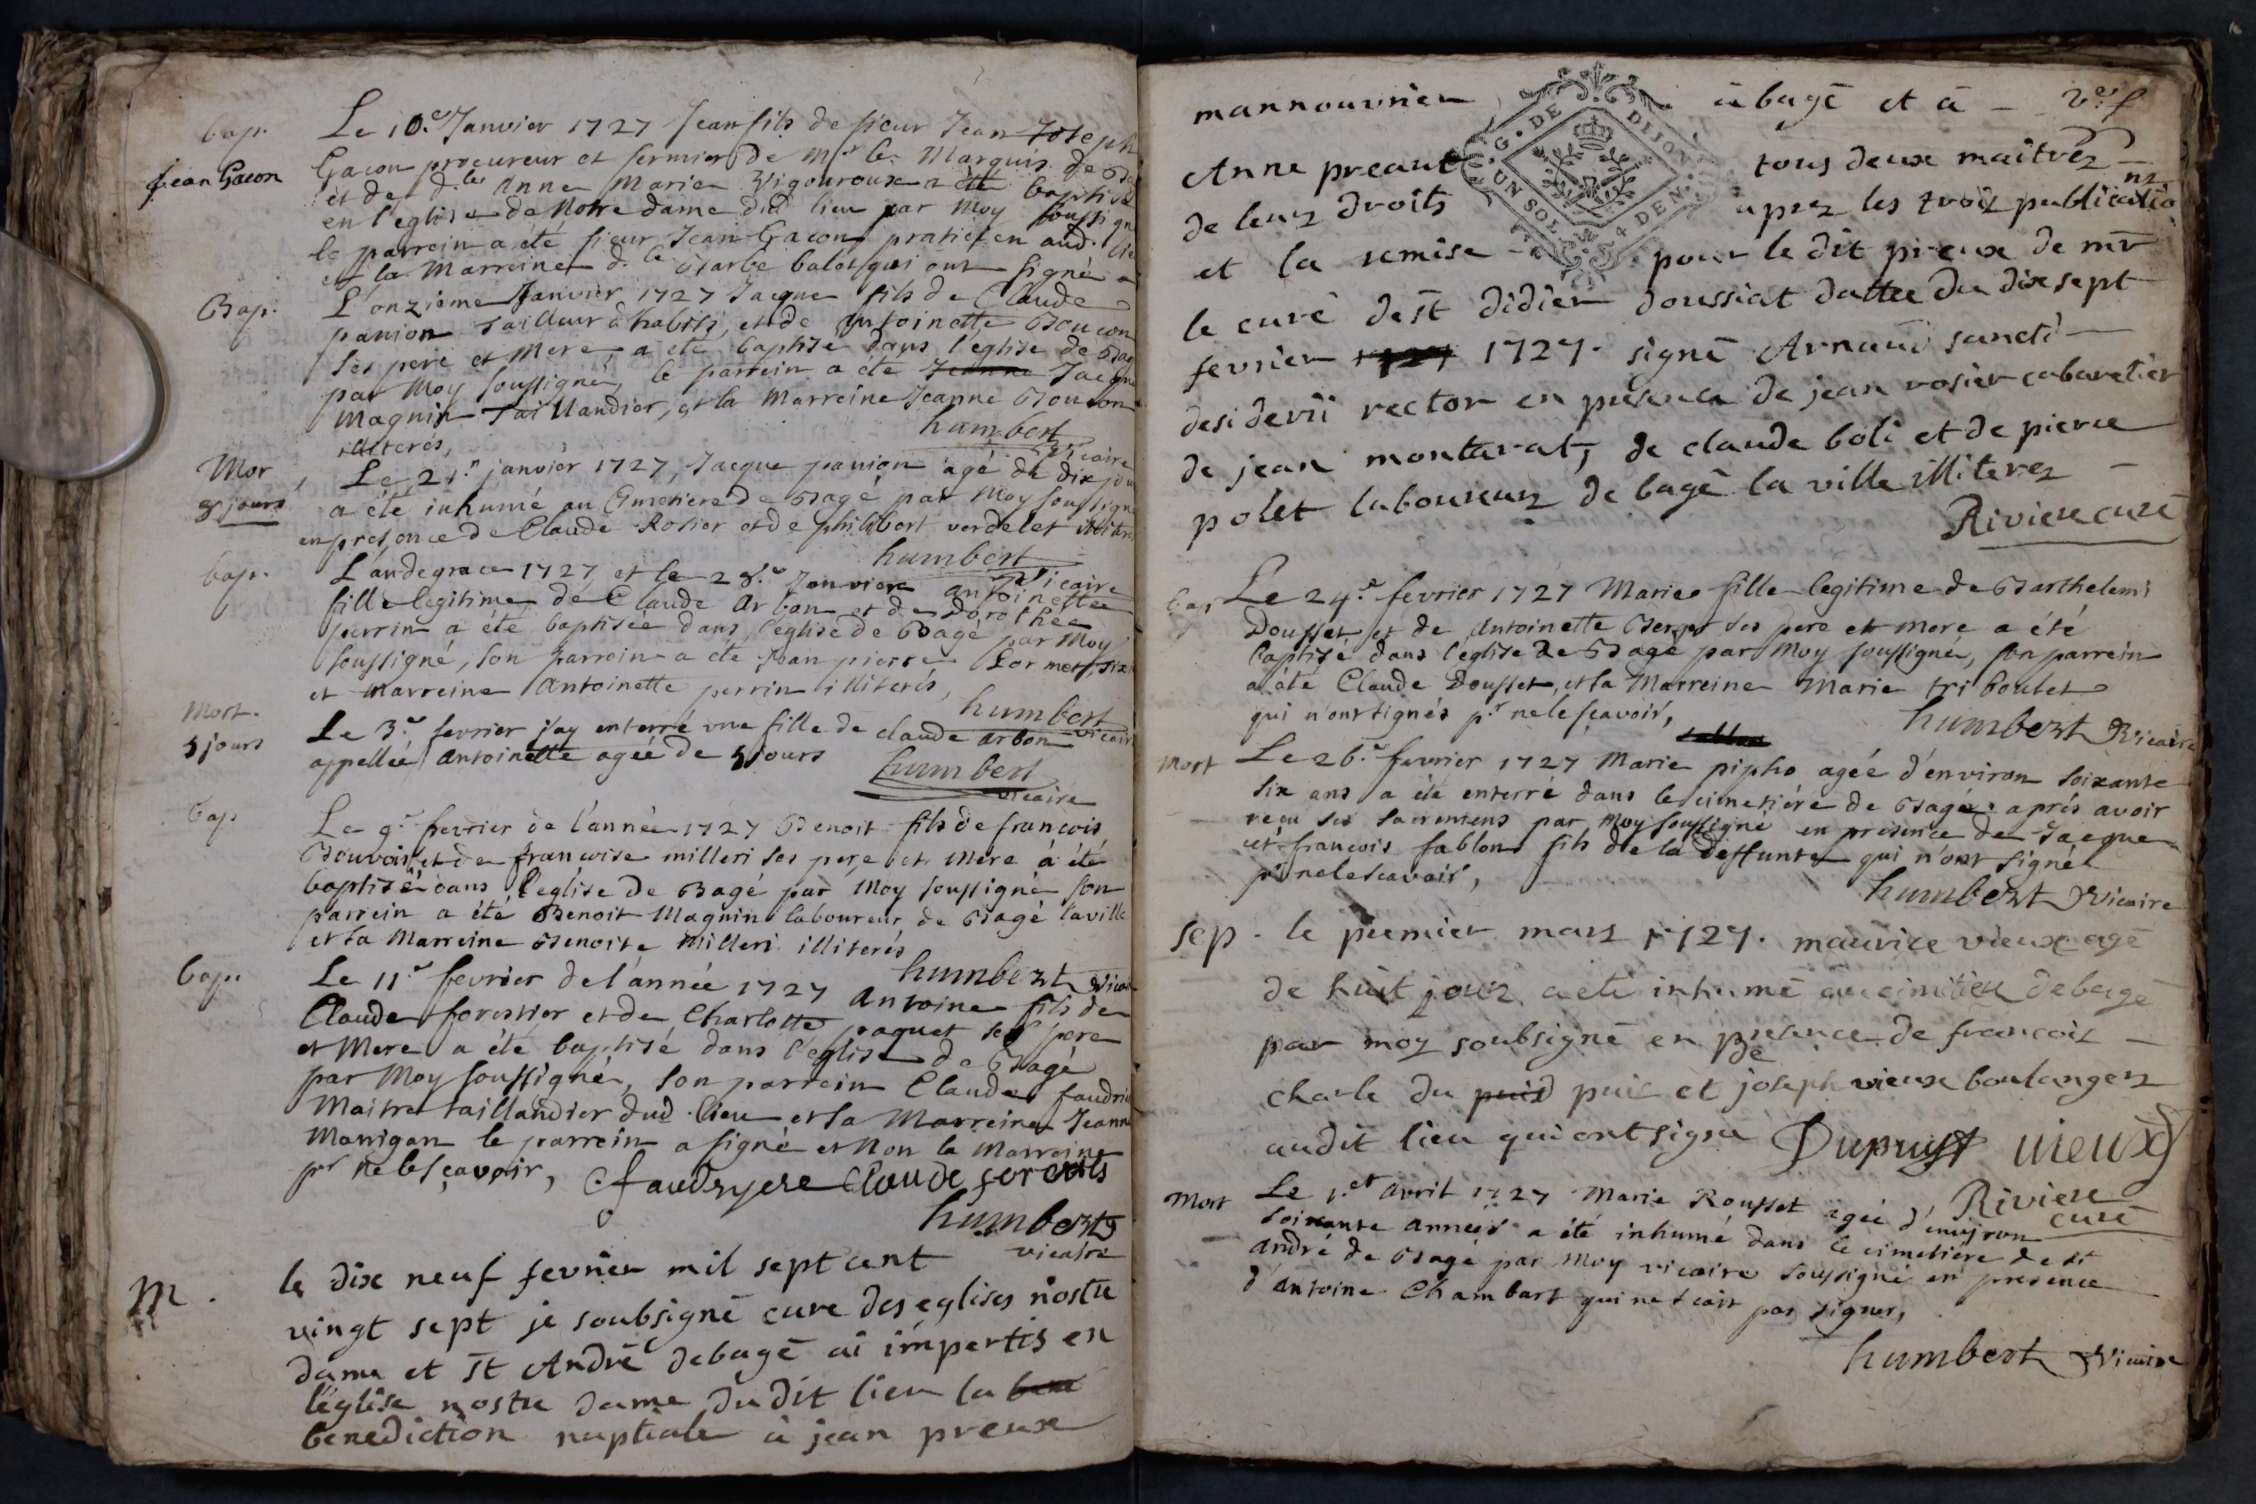 bap.
jean Gacon
Le 10.e Janvier 1727 Jean fils de sieur Jean Joseph
Gacon procureur et fermier de Mr le Marquis de
et de d.lle Anne Marie Vigouroux a été baptisé
en l'eglise de Notre dame dud lieu par Moy soussigné
le parrein a été sieur Jean Gacon praticien aud. lieu
et la Marreine d.lle Barbe balot qui ont signé
Bap.
L'onzieme Janvier 1727 Jacque fils de Claude
panion Tailleur d'habits, et de Antoinette Boucon
ses pere et Mere, a été baptisé dans l'eglise de Bagé
par Moy soussigné, le parrein a été Jeanne Jacque
Magnin Taillandier, et la Marreine Jeanne Boucon
illiterés,
humbert
vicaire
Mor
8 jours
Le 21.e janvier 1727, Jacque panion agé de dix jours
a été inhumé au Cimetiere de Bagé par Moy soussigné
en presence de Claude Rosier et de philibert verdelet
humbert
vicaire
bap.
L'an de grace 1727 et le 28.e Janvier antoinette
fille legitime de Claude Arbon et de Dorothée
perrin a été baptisée dans l'eglise de Bagé par Moy
soussigné, son parrein a été Jean pierre
et marreine Antoinette perrin illiterés,
humbert
vicaire
Mort.
5 jours
Le 3.e fevrier jay enterré une fille de claude arbon
appellée Antoinette agée de 5 jours
humbert
vicaire
bap.
Le 9.e fevrier de l'année 1727 Benoit fils de francois
Bouvois et de francoise milleri ses pere et Mere à été
baptisé dans l'eglise de Bagé par Moy soussigné son
parrein a été Benoit Magnin laboureur de Bagé la ville
et la Marreine Benoite Milleri illiterés
humbert vicaire
bap.
Le 11.e fevrier de l'année 1727 Antoine fils de
Claude forestier et de Charlotte paquet ses pere
et Mere a été baptisé dans l'eglise de Bagé
par Moy soussigné, son parrein Claude faudrie
Maitre taillandier dud. lieu et la Marreine Jeanne
Manigan le parrein a signé et Non la Marreine
pr ne le sçavoir,
faudryere Claude
humbert
vicaire
M.
le dix neuf fevrier mil sept cent
vingt sept je soubsigné curé des eglises nostre
dame et St André de bagé ai impertis en
l'eglise nostre dame du dit lieu la
benediction nuptiale à jean preux
mannouvrier à bagé et à
Anne preaut tous deux maitres
de leurs droits aprez les trois publications
et la remise pour le dit preux de mr
le curé de St didier doussiat dattée du dix sept
fevrier 1727 1727. signé Arnaud sancti
desiderii rector en presence de jean rosier cabaretier
de jean montarat, de claude boli et de pierre
polet laboureurs de bagé la ville illiterez
Riviere curé
G. DE DIJON
UN SOL 4 DEN.
bap
Le 24.e fevrier 1727 Marie fille legitime de Barthelemi
Dousset et de Antoinette ses pere et mere a été
baptisé dans l'eglise de Bagé par Moy soussigné, son parrein
a été Claude Dousset, et la Marreine Marie triboulet
qui n'ont signés pr ne le sçavoir,
humbert vicaire
Mort
Le 26.e fevrier 1727 Marie pipho agée d'environ soixante
six ans a été enterré dans le cimetiére de Bagé après avoir
recu ses sacremens par Moy soussigné en presence de Jacque
et francois sablon fils de la deffunte qui n'ont signé
pr ne le scavoir,
humbert vicaire
sep.
le premier mars 1727. maurice vieux agé
de huit jours a eté inhumé au cimitiere de bagé
par moy soubsigné en presence de francois
charle du puid puis et joseph vieux boulangers
au dit lieu qui ont signé Dupuys vieux
Riviere
curé
Mort
Le 1.er avril 1727 Marie Rousset agée d'environ
soixante années a été inhumé dans le cimetiére de St
André de Bagé par Moy vicaire soussigné en presence
d'Antoine Chambart qui ne scait pas signer,
humbert vicaire